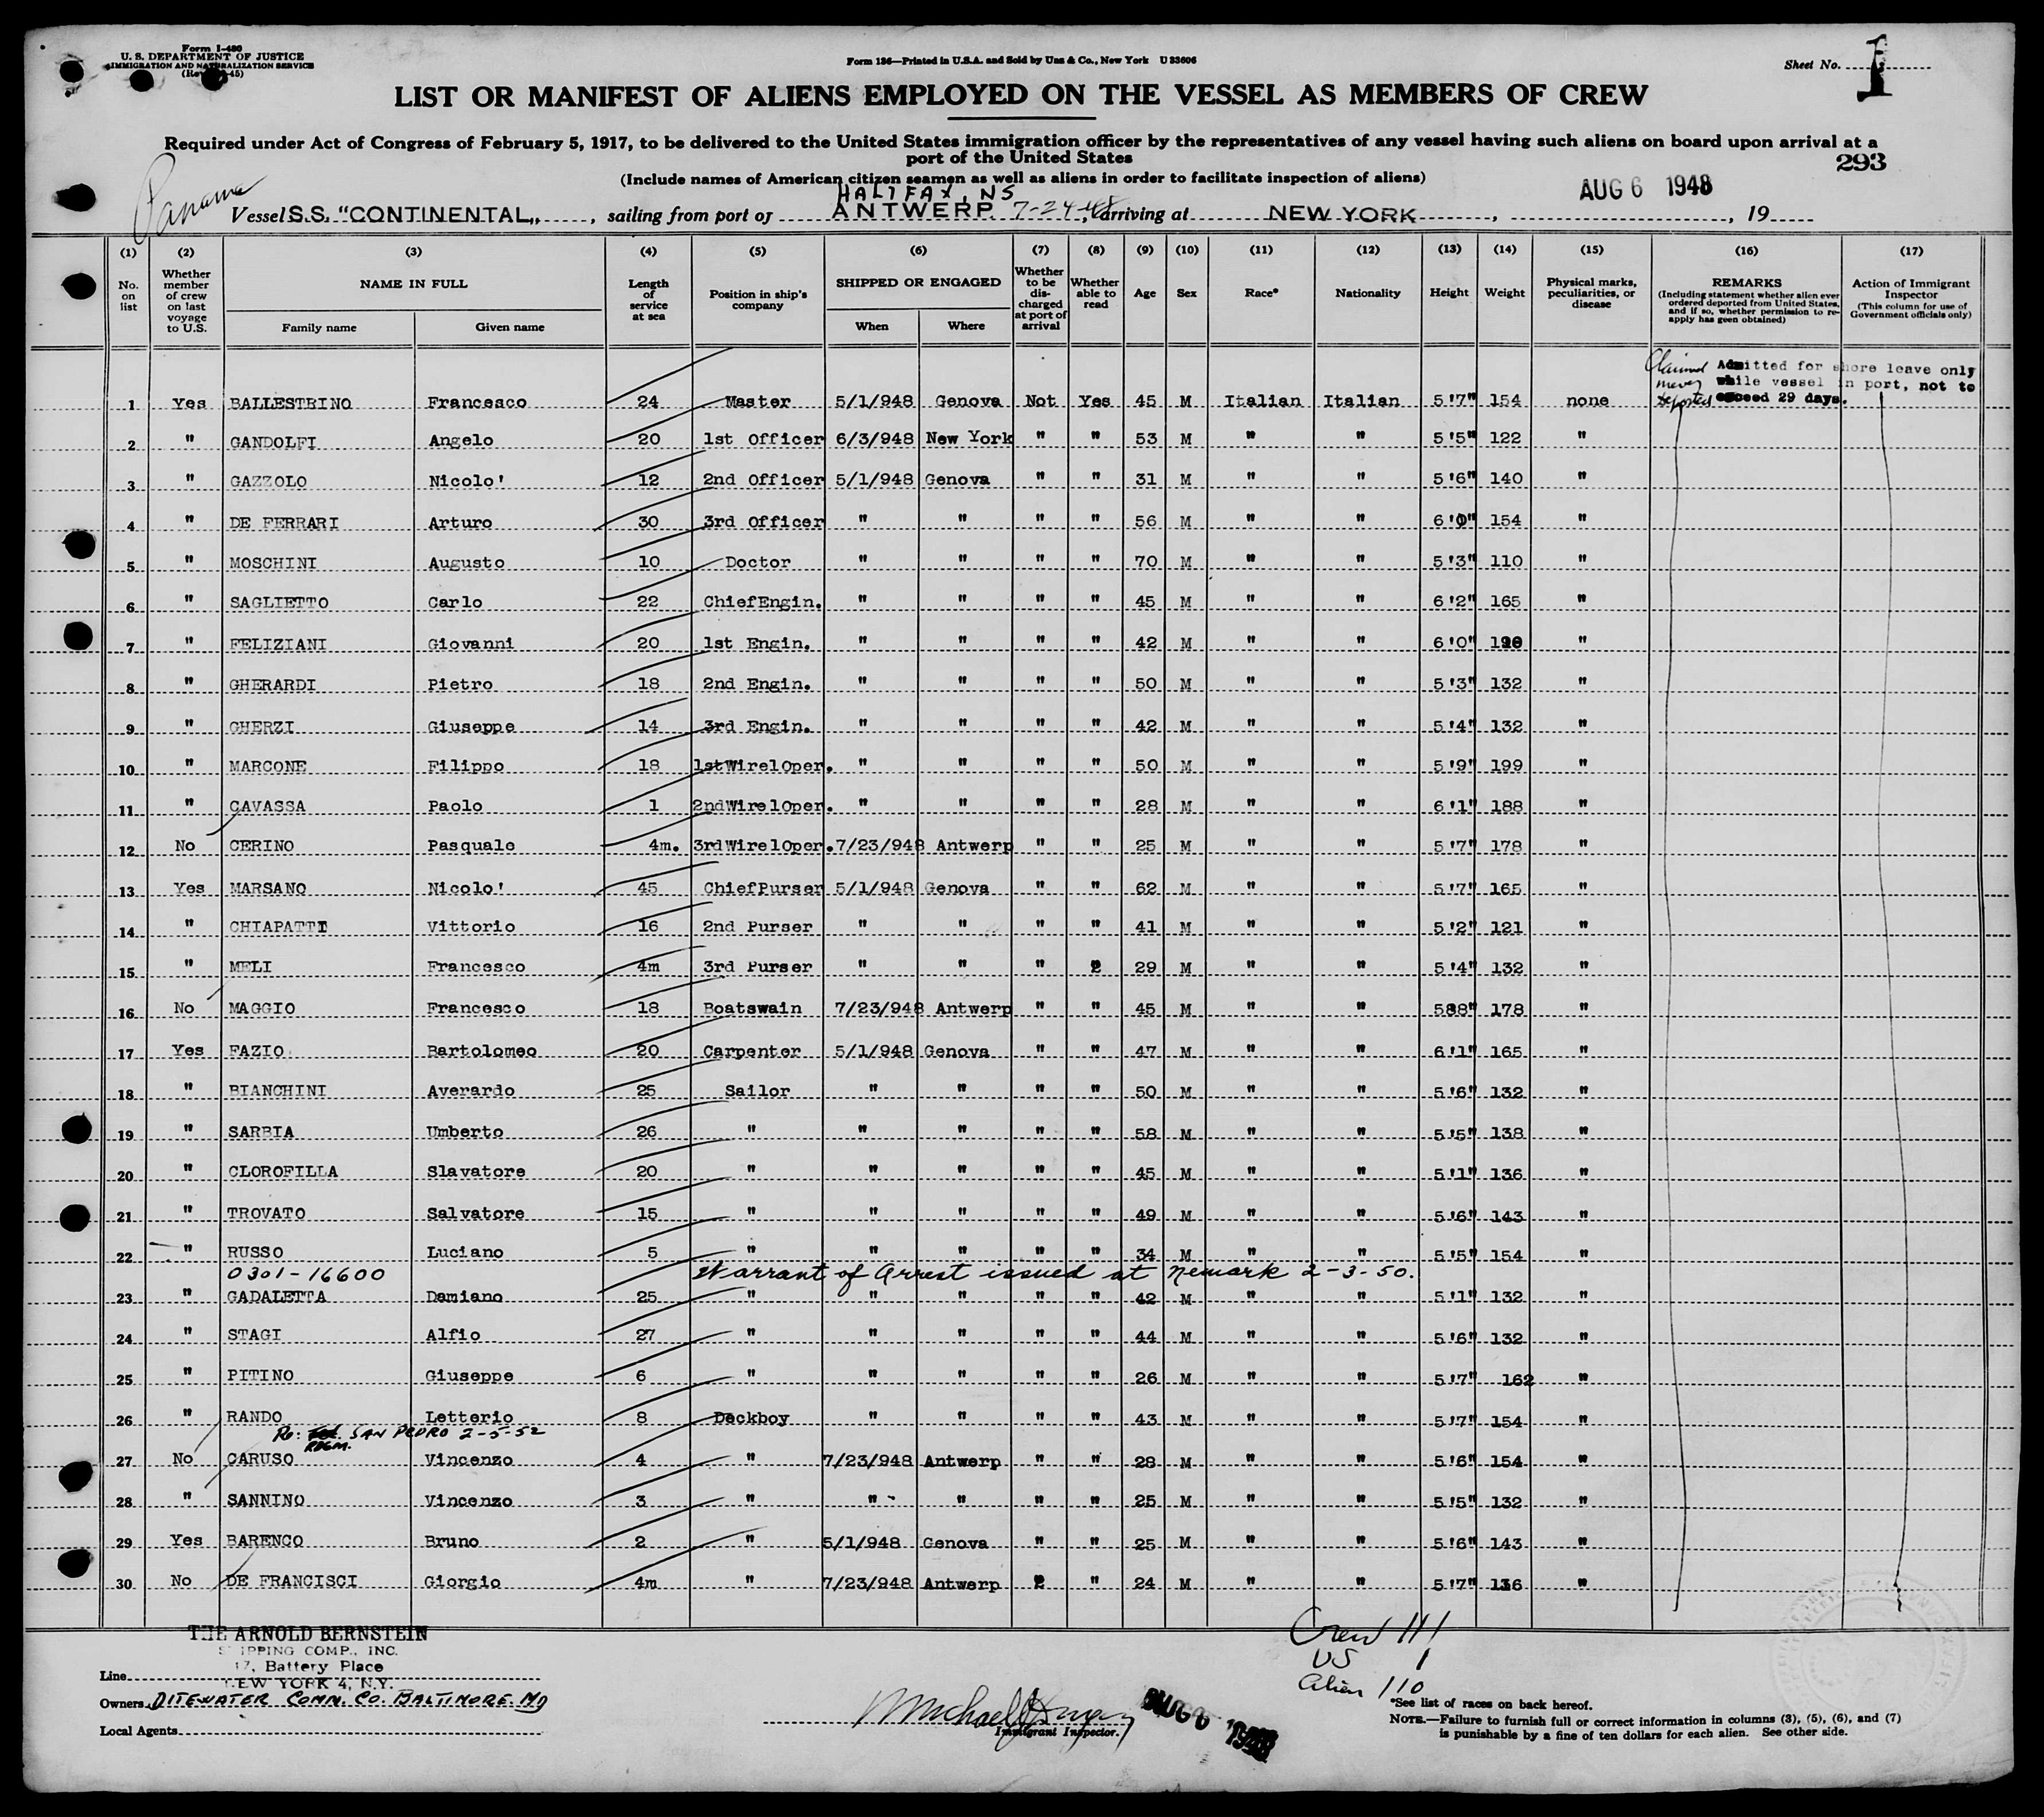 Form I-486
U. S. DEPARTMENT OF JUSTICE
IMMIGRATION AND NATURALIZATION SERVICE
Form 136—Printed in U.S.A. and Sold by Unz & Co., New York U 33606
Sheet No. 1
LIST OR MANIFEST OF ALIENS EMPLOYED ON THE VESSEL AS MEMBERS OF CREW
Required under Act of Congress of February 5, 1917, to be delivered to the United States immigration officer by the representatives of any vessel having such aliens on board upon arrival at a
port of the United States
293
(Include names of American citizen seamen as well as aliens in order to facilitate inspection of aliens)
Panama
HALIFAX, NS
AUG 6 1948
Vessel S.S. "CONTINENTAL", sailing from port of ANTWERP 7-24-48, arriving at NEW YORK, 19
(1) (2) (3) (4) (5) (6) (7) (8) (9) (10) (11) (12) (13) (14) (15) (16) (17)
No. on list
Whether member of crew on last voyage to U.S.
NAME IN FULL
Family name
Given name
Length of service at sea
Position in ship's company
SHIPPED OR ENGAGED
When
Where
Whether to be discharged at port of arrival
Whether able to read
Age
Sex
Race*
Nationality
Height
Weight
Physical marks, peculiarities, or disease
REMARKS
(Including statement whether alien ever ordered deported from United States, and if so, whether permission to re-apply has geen obtained)
Action of Immigrant Inspector
(This column for use of Government officials only)
Claimed never deported
Admitted for shore leave only
while vessel in port, not to
exceed 29 days.
1 Yes BALLESTRINO Francesco 24 Master 5/1/948 Genova Not Yes 45 M Italian Italian 5'7" 154 none
2 " GANDOLFI Angelo 20 1st Officer 6/3/948 New York " " 53 M " " 5'5" 122 "
3 " GAZZOLO Nicolo' 12 2nd Officer 5/1/948 Genova " " 31 M " " 5'6" 140 "
4 " DE FERRARI Arturo 30 3rd Officer " " " " 56 M " " 6'0" 154 "
5 " MOSCHINI Augusto 10 Doctor " " " " 70 M " " 5'3" 110 "
6 " SAGLIETTO Carlo 22 ChiefEngin. " " " " 45 M " " 6'2" 165 "
7 " FELIZIANI Giovanni 20 1st Engin. " " " " 42 M " " 6'0" "
8 " GHERARDI Pietro 18 2nd Engin. " " " " 50 M " " 5'3" 132 "
9 " GHERZI Giuseppe 14 3rd Engin. " " " " 42 M " " 5'4" 132 "
10 " MARCONE Filippo 18 1stWirelOper. " " " " 50 M " " 5'9" 199 "
11 " CAVASSA Paolo 1 2ndWirelOper. " " " " 28 M " " 6'1" 188 "
12 No CERINO Pasquale 4m. 3rdWirelOper. 7/23/948 Antwerp " " 25 M " " 5'7" 178 "
13 Yes MARSANO Nicolo' 45 ChiefPurser 5/1/948 Genova " " 62 M " " 5'7" 165 "
14 " CHIAPATTI Vittorio 16 2nd Purser " " " " 41 M " " 5'2" 121 "
15 " MELI Francesco 4m 3rd Purser " " " 2 29 M " " 5'4" 132 "
16 No MAGGIO Francesco 18 Boatswain 7/23/948 Antwerp " " 45 M " " 588" 178 "
17 Yes FAZIO Bartolomeo 20 Carpenter 5/1/948 Genova " " 47 M " " 6'1" 165 "
18 " BIANCHINI Averardo 25 Sailor " " " " 50 M " " 5'6" 132 "
19 " SARBIA Umberto 26 " " " " " 58 M " " 5'5" 138 "
20 " CLOROFILLA Slavatore 20 " " " " " 45 M " " 5'1" 136 "
21 " TROVATO Salvatore 15 " " " " " 49 M " " 5'6" 143 "
22 " RUSSO Luciano 5 " " " " " 34 M " " 5'5" 154 "
0301-16600 Warrant of Arrest issued at Newark 2-3-50.
23 " GADALETTA Damiano 25 " " " " " 42 M " " 5'1" 132 "
24 " STAGI Alfio 27 " " " " " 44 M " " 5'6" 132 "
25 " PITINO Giuseppe 6 " " " " " 26 M " " 5'7" 162 "
26 " RANDO Letterio 8 Deckboy " " " " 43 M " " 5'7" 154 "
Re: SAN PEDRO 2-5-52
27 No CARUSO Vincenzo 4 " 7/23/948 Antwerp " " 28 M " " 5'6" 154 "
28 " SANNINO Vincenzo 3 " " " " " 25 M " " 5'5" 132 "
29 Yes BARENCO Bruno 2 " 5/1/948 Genova " " 25 M " " 5'6" 143 "
30 No DE FRANCISCI Giorgio 4m " 7/23/948 Antwerp 2 " 24 M " " 5'7" 136 "
THE ARNOLD BERNSTEIN
SHIPPING COMP., INC.
17, Battery Place
NEW YORK 4, N.Y.
Line
Owners DITEWATER COMM. CO. BALTIMORE MD
Local Agents
Immigrant Inspector.
AUG 6 1948
Crew 111
US 1
Alien 110
*See list of races on back hereof.
NOTE.—Failure to furnish full or correct information in columns (3), (5), (6), and (7)
is punishable by a fine of ten dollars for each alien. See other side.